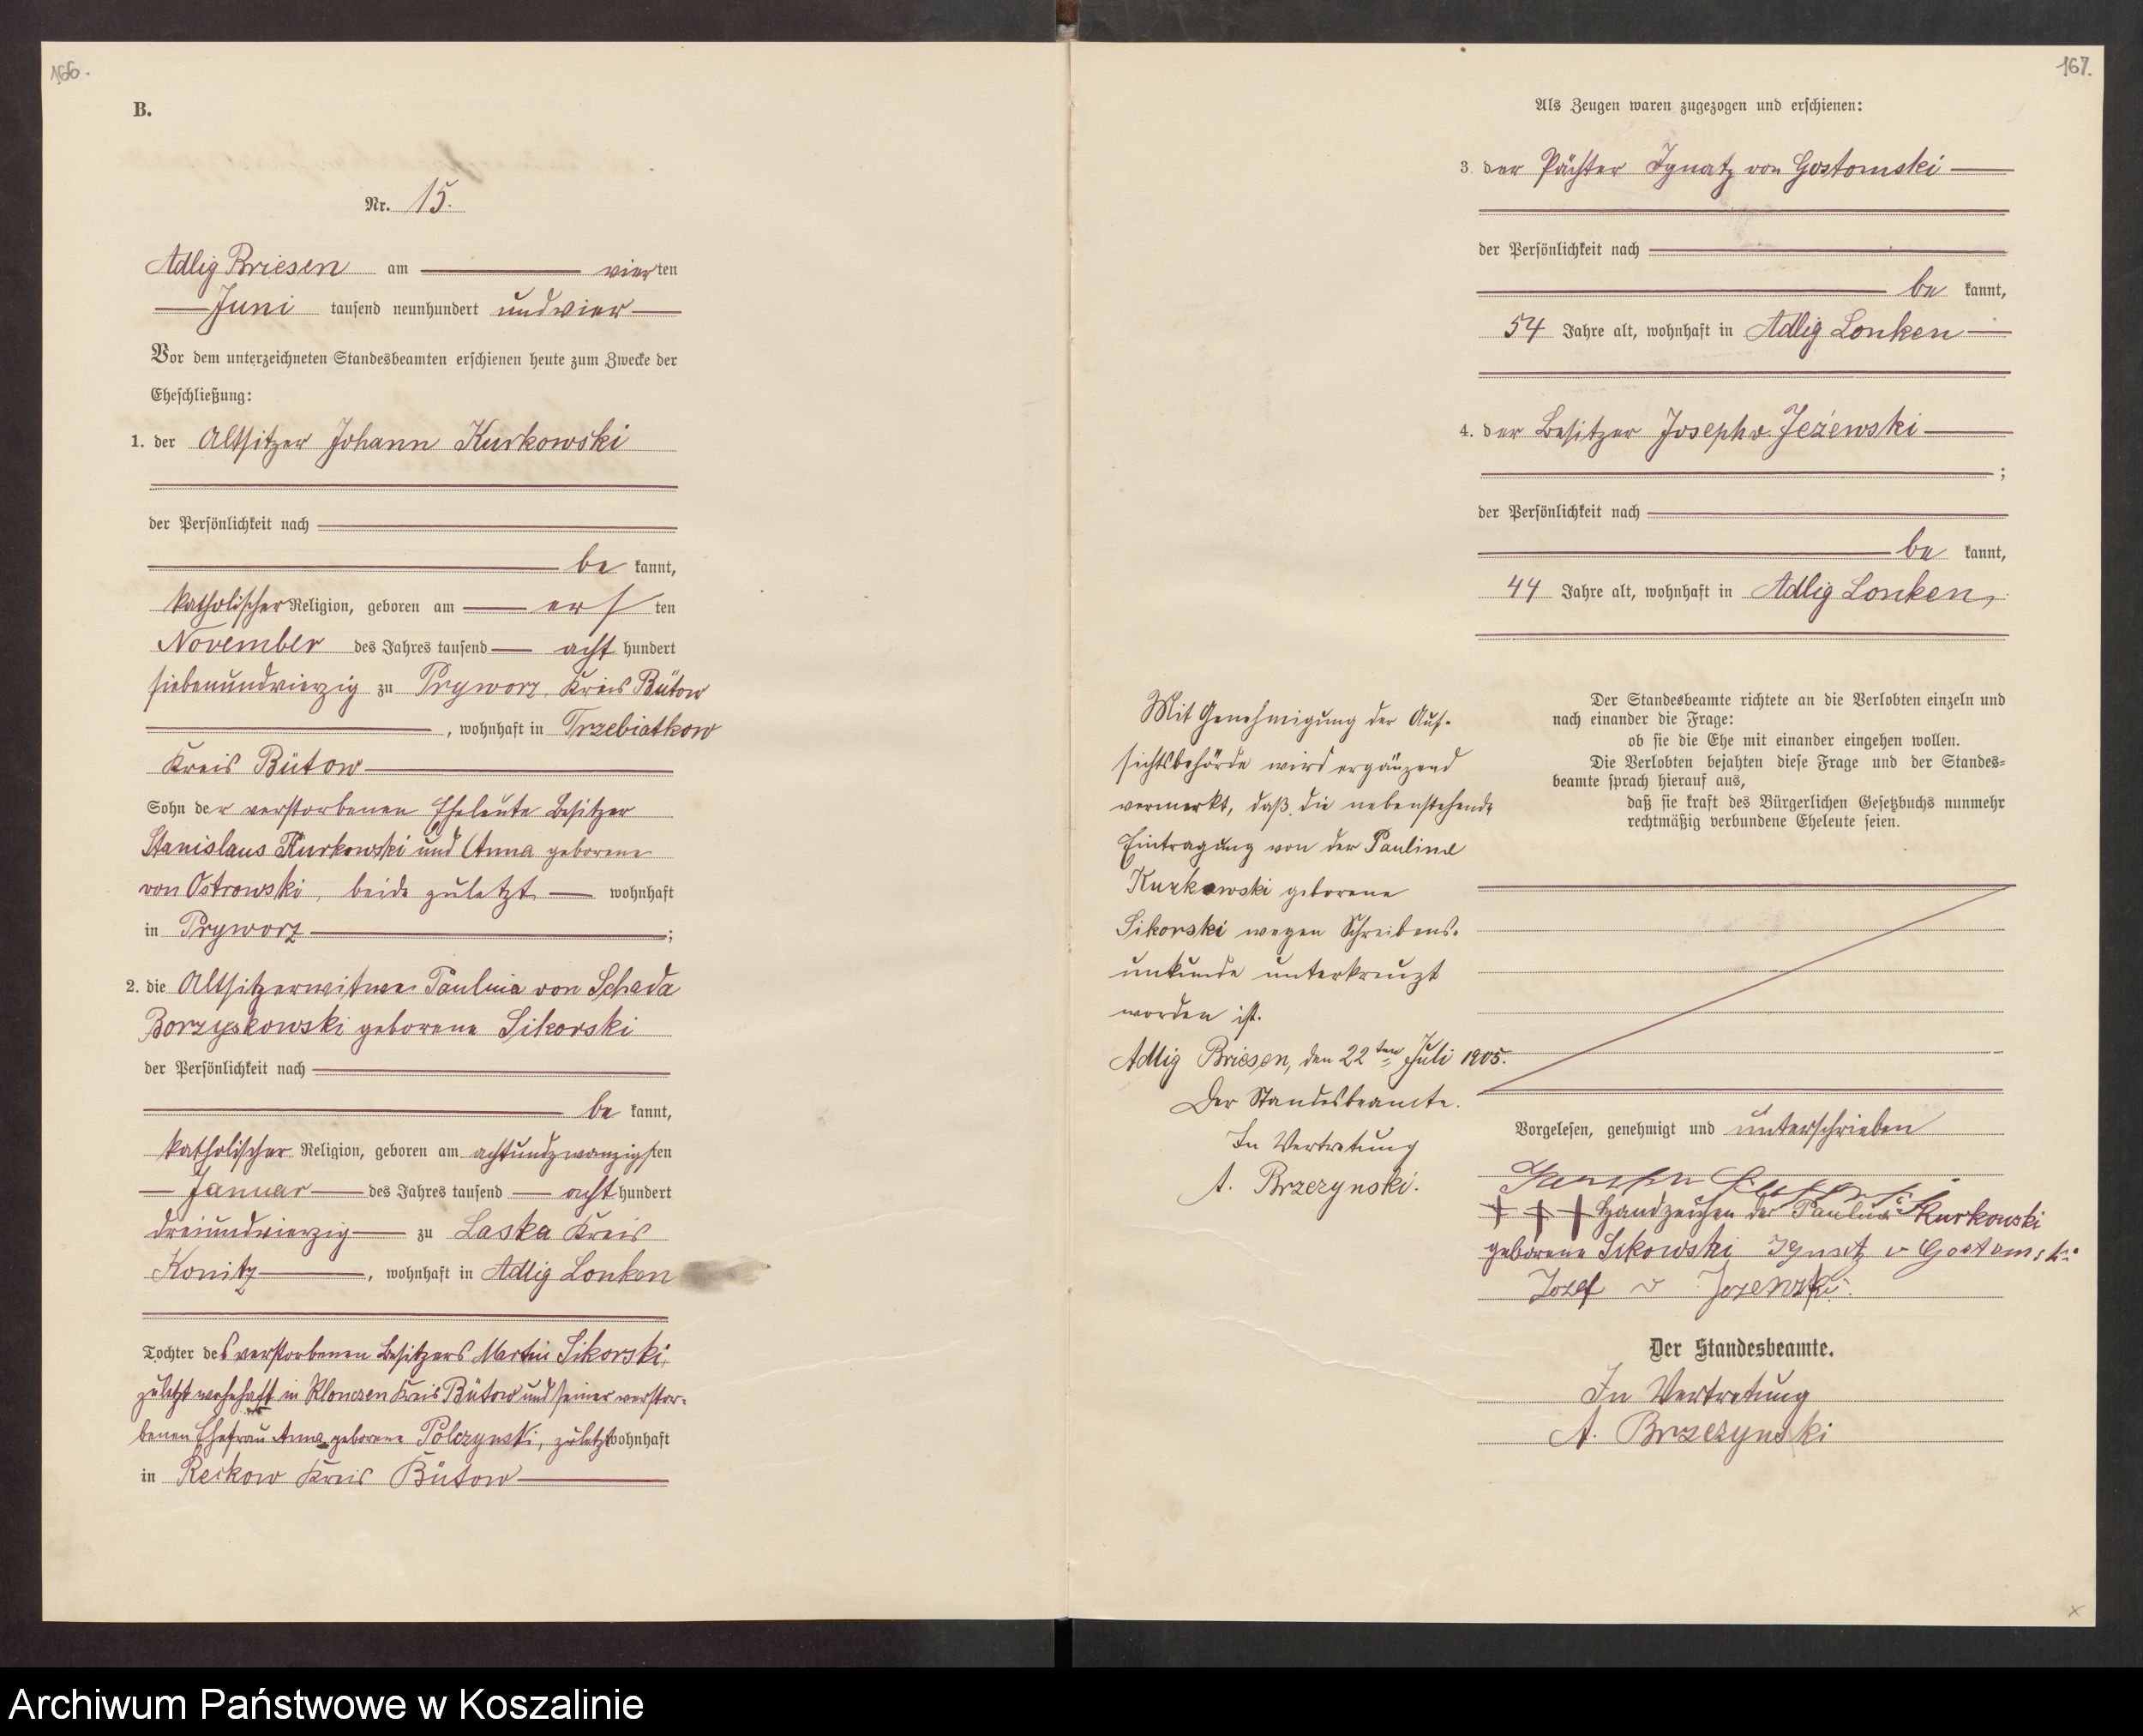 166.
B.
Nr. 15.
Adlig Briesen am vierten
Juni tausend neunhundert undvier
Vor dem unterzeichneten Standesbeamten erschienen heute zum Zwecke der
Eheschließung:
1. der Altsitzer Johann Kurkowski
der Persönlichkeit nach
be kannt,
katholischer Religion, geboren am ersten
November des Jahres tausend acht hundert
siebenundvierzig zu Pryworz Kreis Bütow
, wohnhaft in Trzebiatkow
Kreis Bütow
Sohn der verstorbenen Eheleute Besitzer
Stanislaus Kurkowski und Anna geborene
von Ostrowski, beide zuletzt wohnhaft
in Pryworz ;
2. die Altsitzerwitwe Paulina von Schada
Borzyskowski geborene Sikorski
der Persönlichkeit nach
be kannt,
katholischer Religion, geboren am achtundzwanzigsten
Januar des Jahres tausend acht hundert
dreiundvierzig zu Laska Kreis
Konitz , wohnhaft in Adlig Lonken
Tochter des verstorbenen Besitzers Martin Sikorski,
zuletzt wohnhaft in Klonczen Kreis Bütow und seiner verstor-
benen Ehefrau Anna geborene Polczynski, zuletzt wohnhaft
in Reckow Kreis Bütow
167.
Als Zeugen waren zugezogen und erschienen:
3. der Pächter Ignatz von Gostomski
der Persönlichkeit nach
be kannt,
54 Jahre alt, wohnhaft in Adlig Lonken
4. der Besitzer Joseph v. Jeżewski
;
der Persönlichkeit nach
be kannt,
44 Jahre alt, wohnhaft in Adlig Lonken,
Der Standesbeamte richtete an die Verlobten einzeln und
nach einander die Frage:
ob sie die Ehe mit einander eingehen wollen.
Die Verlobten bejahten diese Frage und der Standes-
beamte sprach hierauf aus,
daß sie kraft des Bürgerlichen Gesetzbuchs nunmehr
rechtmäßig verbundene Eheleute seien.
Mit Genehmigung der Auf-
sichtsbehörde wird ergänzend
vermerkt, daß die nebenstehende
Eintragung von der Pauline
Kurkowski geborene
Sikorski wegen Schreibens-
unkunde unterkreuzt
worden ist.
Adlig Briesen, den 22ten Juli 1905.
Der Standesbeamte.
In Vertretung
A. Brzezynski.
Vorgelesen, genehmigt und unterschrieben
+ + + Handzeichen der Paulina Kurkowski
geborene Sikowski Ignatz v Gostomski
Jozef v Jezewski.
Der Standesbeamte.
In Vertretung
A. Brzezynski
x
Archiwum Państwowe w Koszalinie